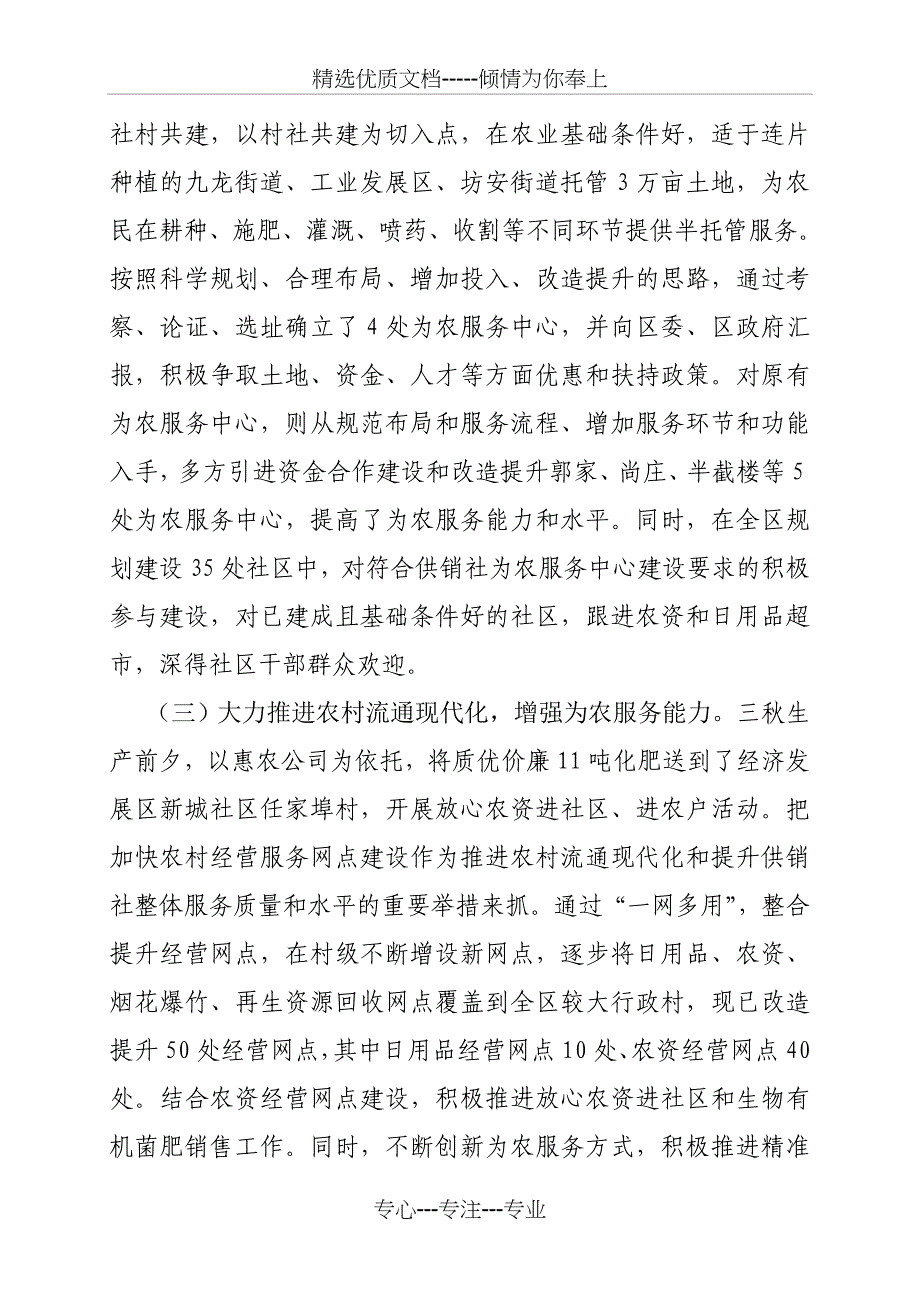 精选优质文档-----倾情为你奉上
社村共建，以村社共建为切入点，在农业基础条件好，适于连片
种植的九龙街道、工业发展区、坊安街道托管 3 万亩土地，为农
民在耕种、施肥、灌溉、喷药、收割等不同环节提供半托管服务。
按照科学规划、合理布局、增加投入、改造提升的思路，通过考
察、论证、选址确立了 4 处为农服务中心，并向区委、区政府汇
报，积极争取土地、资金、人才等方面优惠和扶持政策。对原有
为农服务中心，则从规范布局和服务流程、增加服务环节和功能
入手，多方引进资金合作建设和改造提升郭家、尚庄、半截楼等 5
处为农服务中心，提高了为农服务能力和水平。同时，在全区规
划建设 35 处社区中，对符合供销社为农服务中心建设要求的积极
参与建设，对已建成且基础条件好的社区，跟进农资和日用品超
市，深得社区干部群众欢迎。
（三）大力推进农村流通现代化，增强为农服务能力。三秋生
产前夕，以惠农公司为依托，将质优价廉 11 吨化肥送到了经济发
展区新城社区任家埠村，开展放心农资进社区、进农户活动。把
加快农村经营服务网点建设作为推进农村流通现代化和提升供销
社整体服务质量和水平的重要举措来抓。通过“一网多用”，整合
提升经营网点，在村级不断增设新网点，逐步将日用品、农资、
烟花爆竹、再生资源回收网点覆盖到全区较大行政村，现已改造
提升 50 处经营网点，其中日用品经营网点 10 处、农资经营网点 40
处。结合农资经营网点建设，积极推进放心农资进社区和生物有
机菌肥销售工作。同时，不断创新为农服务方式，积极推进精准
专心---专注---专业